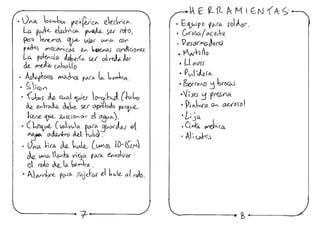 • Una bomba periférica electrica.
La parte electrica puede ser roto,
pero tenemos que usar una con
partes mecanicas en buenas condiciones
La potencia debería ser alrededor
de medio caballo
• Adaptores machos para la bomba.
• Silicon
• Tubos de cualquier longitud (tubo
de entrada debe ser apretado porque
tiene que succionar el agua).
• Cheque (valvula para guardar el
agua adentro del tubo)
• Una tira de hule (unos 10-15cm)
de una llanta vieja para envolver
el rodo de la bomba.
• Alambre para sujetar el hule al rodo.
7
HERRAMIENTAS
• Equipo para soldar.
• Grasa/aceite
• Desarmadores
• Martillo
• Llaves
• Pulidora
• Barreno y brocas
• Vises y prensa
• Pintura en aerosol
• Lija
• Cinta metrica
• Alicates
8